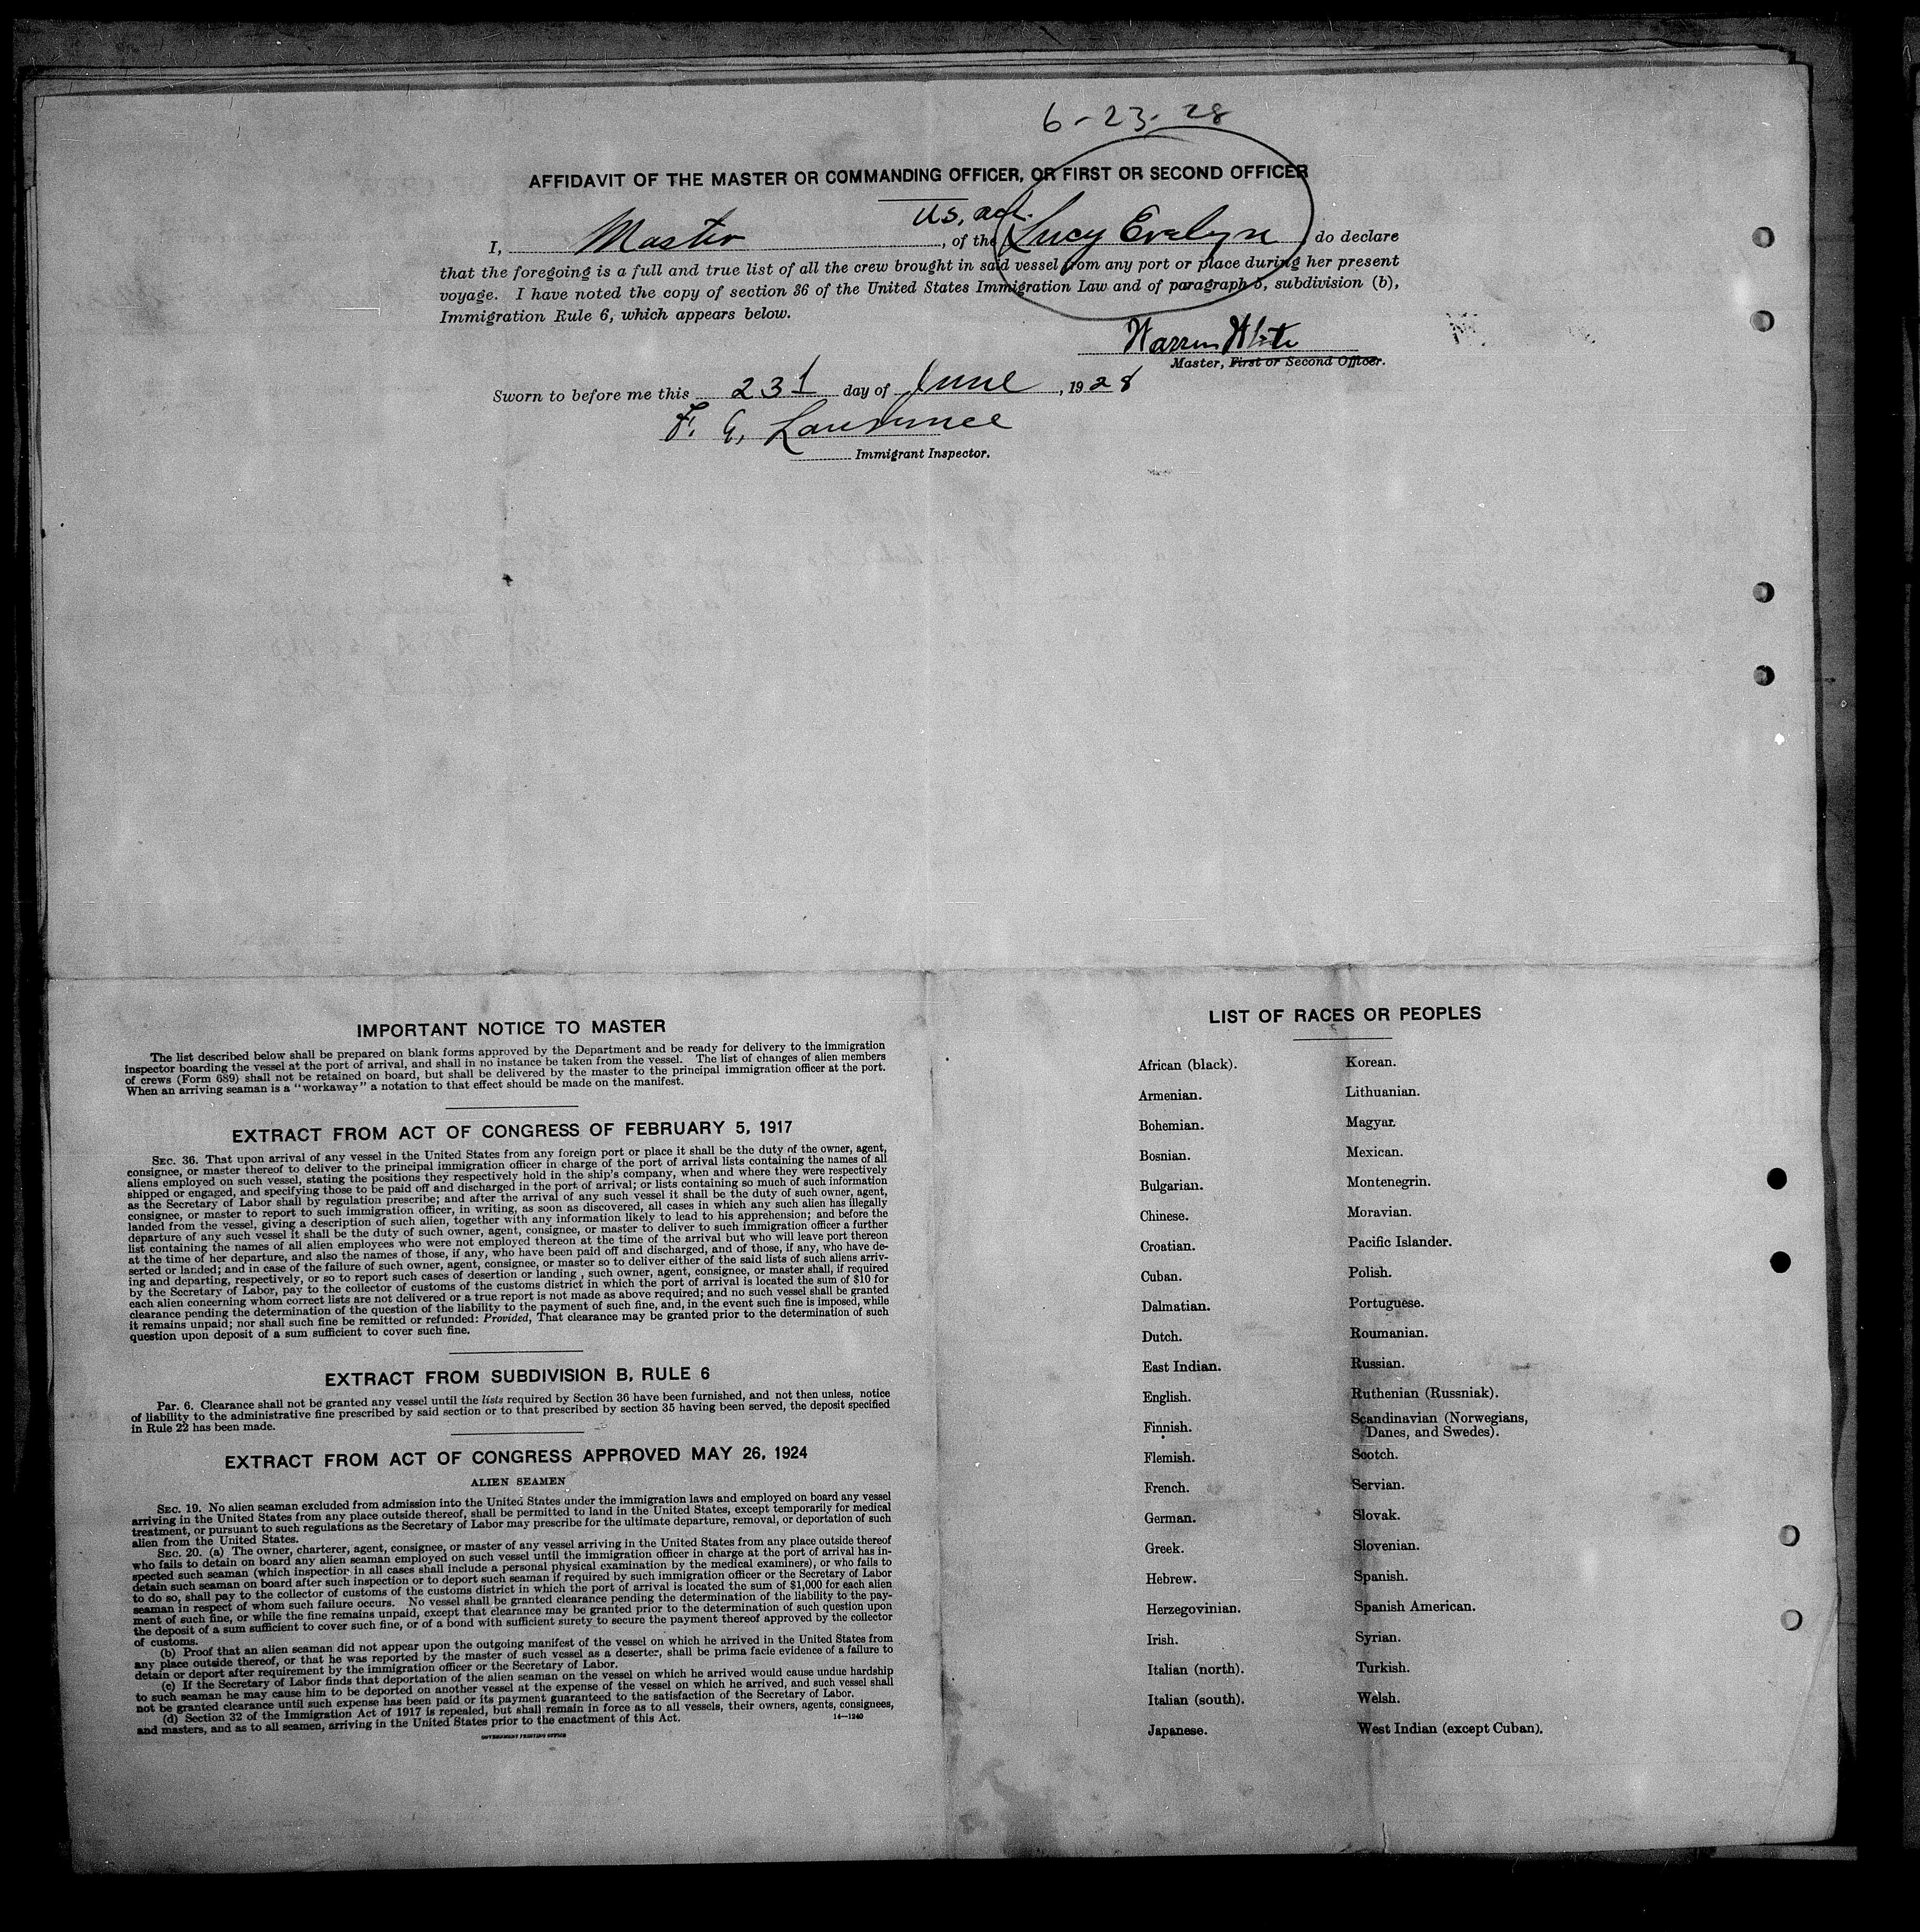 6-23-28
AFFIDAVIT OF THE MASTER OR COMMANDING OFFICER, OR FIRST OR SECOND OFFICER
U.S.
I, Master, of the Lucy Evelyn do declare
that the foregoing is a full and true list of all the crew brought in said vessel from any port or place during her present
voyage. I have noted the copy of section 36 of the United States Immigration Law and of paragraph 5, subdivision (b),
Immigration Rule 6, which appears below.
Warren White
Master, First or Second Officer.
Sworn to before me this 23d day of June, 1928
F. G. Lawrence
Immigrant Inspector.
IMPORTANT NOTICE TO MASTER
The list described below shall be prepared on blank forms approved by the Department and be ready for delivery to the immigration
inspector boarding the vessel at the port of arrival, and shall in no instance be taken from the vessel. The list of changes of alien members
of crews (Form 689) shall not be retained on board, but shall be delivered by the master to the principal immigration officer at the port.
When an arriving seaman is a "workaway" a notation to that effect should be made on the manifest.
EXTRACT FROM ACT OF CONGRESS OF FEBRUARY 5, 1917
SEC. 36. That upon arrival of any vessel in the United States from any foreign port or place it shall be the duty of the owner, agent,
consignee, or master thereof to deliver to the principal immigration officer in charge of the port of arrival lists containing the names of all
aliens employed on such vessel, stating the positions they respectively hold in the ship's company, when and where they were respectively
shipped or engaged, and specifying those to be paid off and discharged in the port of arrival; or lists containing so much of such information
as the Secretary of Labor shall by regulation prescribe; and after the arrival of any such vessel it shall be the duty of such owner, agent,
consignee, or master to report to such immigration officer, in writing, as soon as discovered, all cases in which any such alien has illegally
landed from the vessel, giving a description of such alien, together with any information likely to lead to his apprehension; and before the
departure of any such vessel it shall be the duty of such owner, agent, consignee, or master to deliver to such immigration officer a further
list containing the names of all alien employees who were not employed thereon at the time of the arrival but who will leave port thereon
at the time of her departure, and also the names of those, if any, who have been paid off and discharged, and of those, if any, who have de-
serted or landed; and in case of the failure of such owner, agent, consignee, or master so to deliver either of the said lists of such aliens arriv-
ing and departing, respectively, or so to report such cases of desertion or landing, such owner, agent, consignee, or master shall, if required
by the Secretary of Labor, pay to the collector of customs of the customs district in which the port of arrival is located the sum of $10 for
each alien concerning whom correct lists are not delivered or a true report is not made as above required; and no such vessel shall be granted
clearance pending the determination of the question of the liability to the payment of such fine, and, in the event such fine is imposed, while
it remains unpaid; nor shall such fine be remitted or refunded: Provided, That clearance may be granted prior to the determination of such
question upon deposit of a sum sufficient to cover such fine.
EXTRACT FROM SUBDIVISION B, RULE 6
Par. 6. Clearance shall not be granted any vessel until the lists required by Section 36 have been furnished, and not then unless, notice
of liability to the administrative fine prescribed by said section or to that prescribed by section 35 having been served, the deposit specified
in Rule 22 has been made.
EXTRACT FROM ACT OF CONGRESS APPROVED MAY 26, 1924
ALIEN SEAMEN
SEC. 19. No alien seaman excluded from admission into the United States under the immigration laws and employed on board any vessel
arriving in the United States from any place outside thereof, shall be permitted to land in the United States, except temporarily for medical
treatment, or pursuant to such regulations as the Secretary of Labor may prescribe for the ultimate departure, removal, or deportation of such
alien from the United States.
SEC. 20. (a) The owner, charterer, agent, consignee, or master of any vessel arriving in the United States from any place outside thereof
who fails to detain on board any alien seaman employed on such vessel until the immigration officer in charge at the port of arrival has in-
spected such seaman (which inspection in all cases shall include a personal physical examination by the medical examiners), or who fails to
detain such seaman on board after such inspection or to deport such seaman if required by such immigration officer or the Secretary of Labor
to do so, shall pay to the collector of customs of the customs district in which the port of arrival is located the sum of $1,000 for each alien
seaman in respect of whom such failure occurs. No vessel shall be granted clearance pending the determination of the liability to the pay-
ment of such fine, or while the fine remains unpaid, except that clearance may be granted prior to the determination of such question upon
the deposit of a sum sufficient to cover such fine, or of a bond with sufficient surety to secure the payment thereof approved by the collector
of customs.
(b) Proof that an alien seaman did not appear upon the outgoing manifest of the vessel on which he arrived in the United States from
any place outside thereof, or that he was reported by the master of such vessel as a deserter, shall be prima facie evidence of a failure to
detain or deport after requirement by the immigration officer or the Secretary of Labor.
(c) If the Secretary of Labor finds that deportation of the alien seaman on the vessel on which he arrived would cause undue hardship
to such seaman he may cause him to be deported on another vessel at the expense of the vessel on which he arrived, and such vessel shall
not be granted clearance until such expense has been paid or its payment guaranteed to the satisfaction of the Secretary of Labor.
(d) Section 32 of the Immigration Act of 1917 is repealed, but shall remain in force as to all vessels, their owners, agents, consignees,
and masters, and as to all seamen, arriving in the United States prior to the enactment of this Act.
14—1240
GOVERNMENT PRINTING OFFICE
LIST OF RACES OR PEOPLES
African (black).
Armenian.
Bohemian.
Bosnian.
Bulgarian.
Chinese.
Croatian.
Cuban.
Dalmatian.
Dutch.
East Indian.
English.
Finnish.
Flemish.
French.
German.
Greek.
Hebrew.
Herzegovinian.
Irish.
Italian (north).
Italian (south).
Japanese.
Korean.
Lithuanian.
Magyar.
Mexican.
Montenegrin.
Moravian.
Pacific Islander.
Polish.
Portuguese.
Roumanian.
Russian.
Ruthenian (Russniak).
Scandinavian (Norwegians,
Danes, and Swedes).
Scotch.
Servian.
Slovak.
Slovenian.
Spanish.
Spanish American.
Syrian.
Turkish.
Welsh.
West Indian (except Cuban).